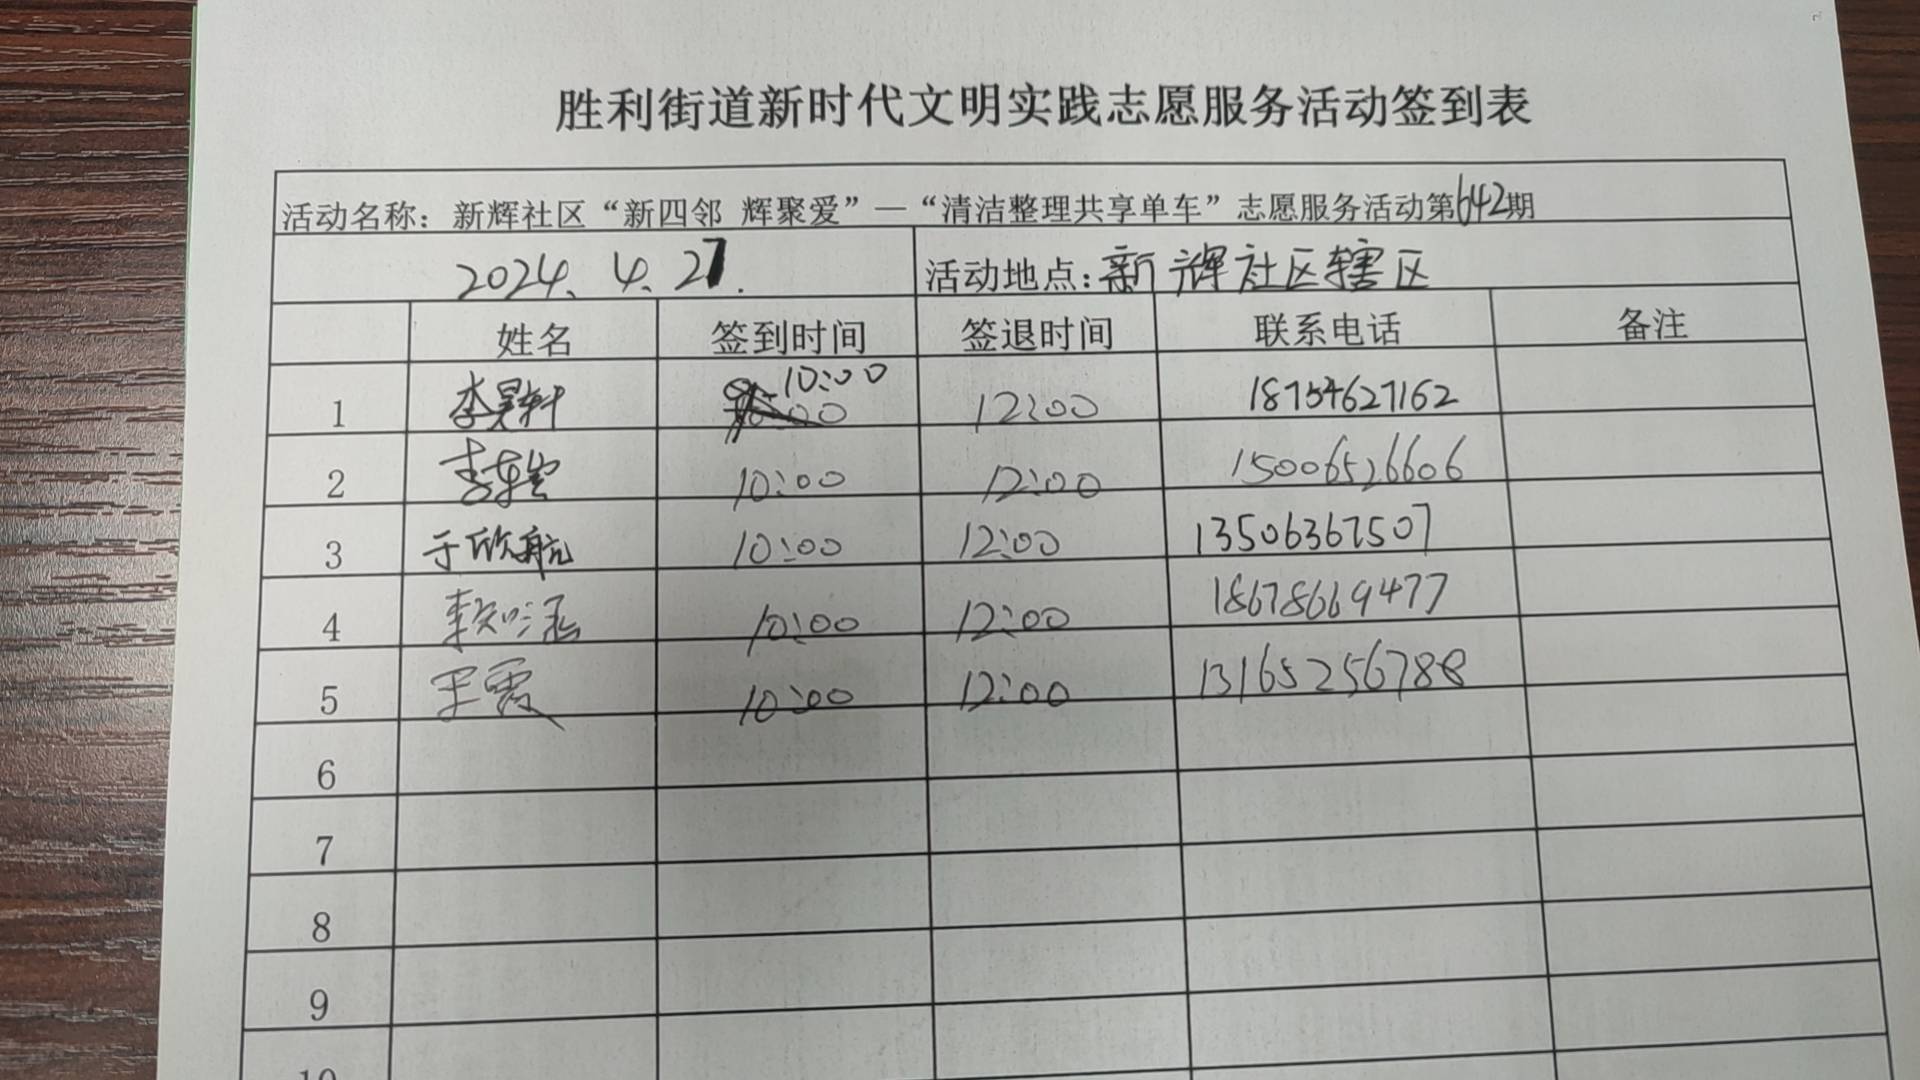 胜利街道新时代文明实践志愿服务活动签到表
活动名称：新辉社区“新四邻 辉聚爱”—“清洁整理共享单车”志愿服务活动第642期
2024.4.27. 活动地点：新辉社区辖区
姓名 签到时间 签退时间 联系电话 备注
1 李昊轩 10:00 12:00 18754627162
2 10:00 12:00 15006526606
3 于欣航 10:00 12:00 13506367507
4 10:00 12:00 18678669477
5 王霞 10:00 12:00 13165256788
6
7
8
9
10